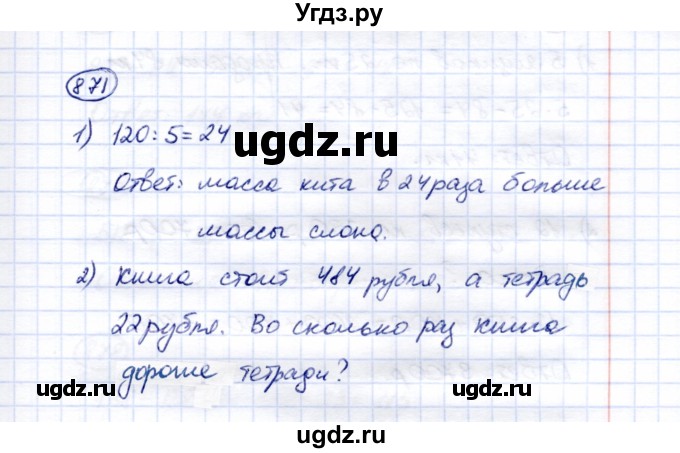 Угдз.ру
871
1) 120:5=24
ugdz.ru
Ответ: масса кита в 24 раза больше
массы слона.
ugdz.ru
2) Книга стоит 484 рубля, а тетрадь
22 рубля. Во сколько раз книга
дороже тетради?
ugdz.ru
ugdz.ru
ugdz.ru